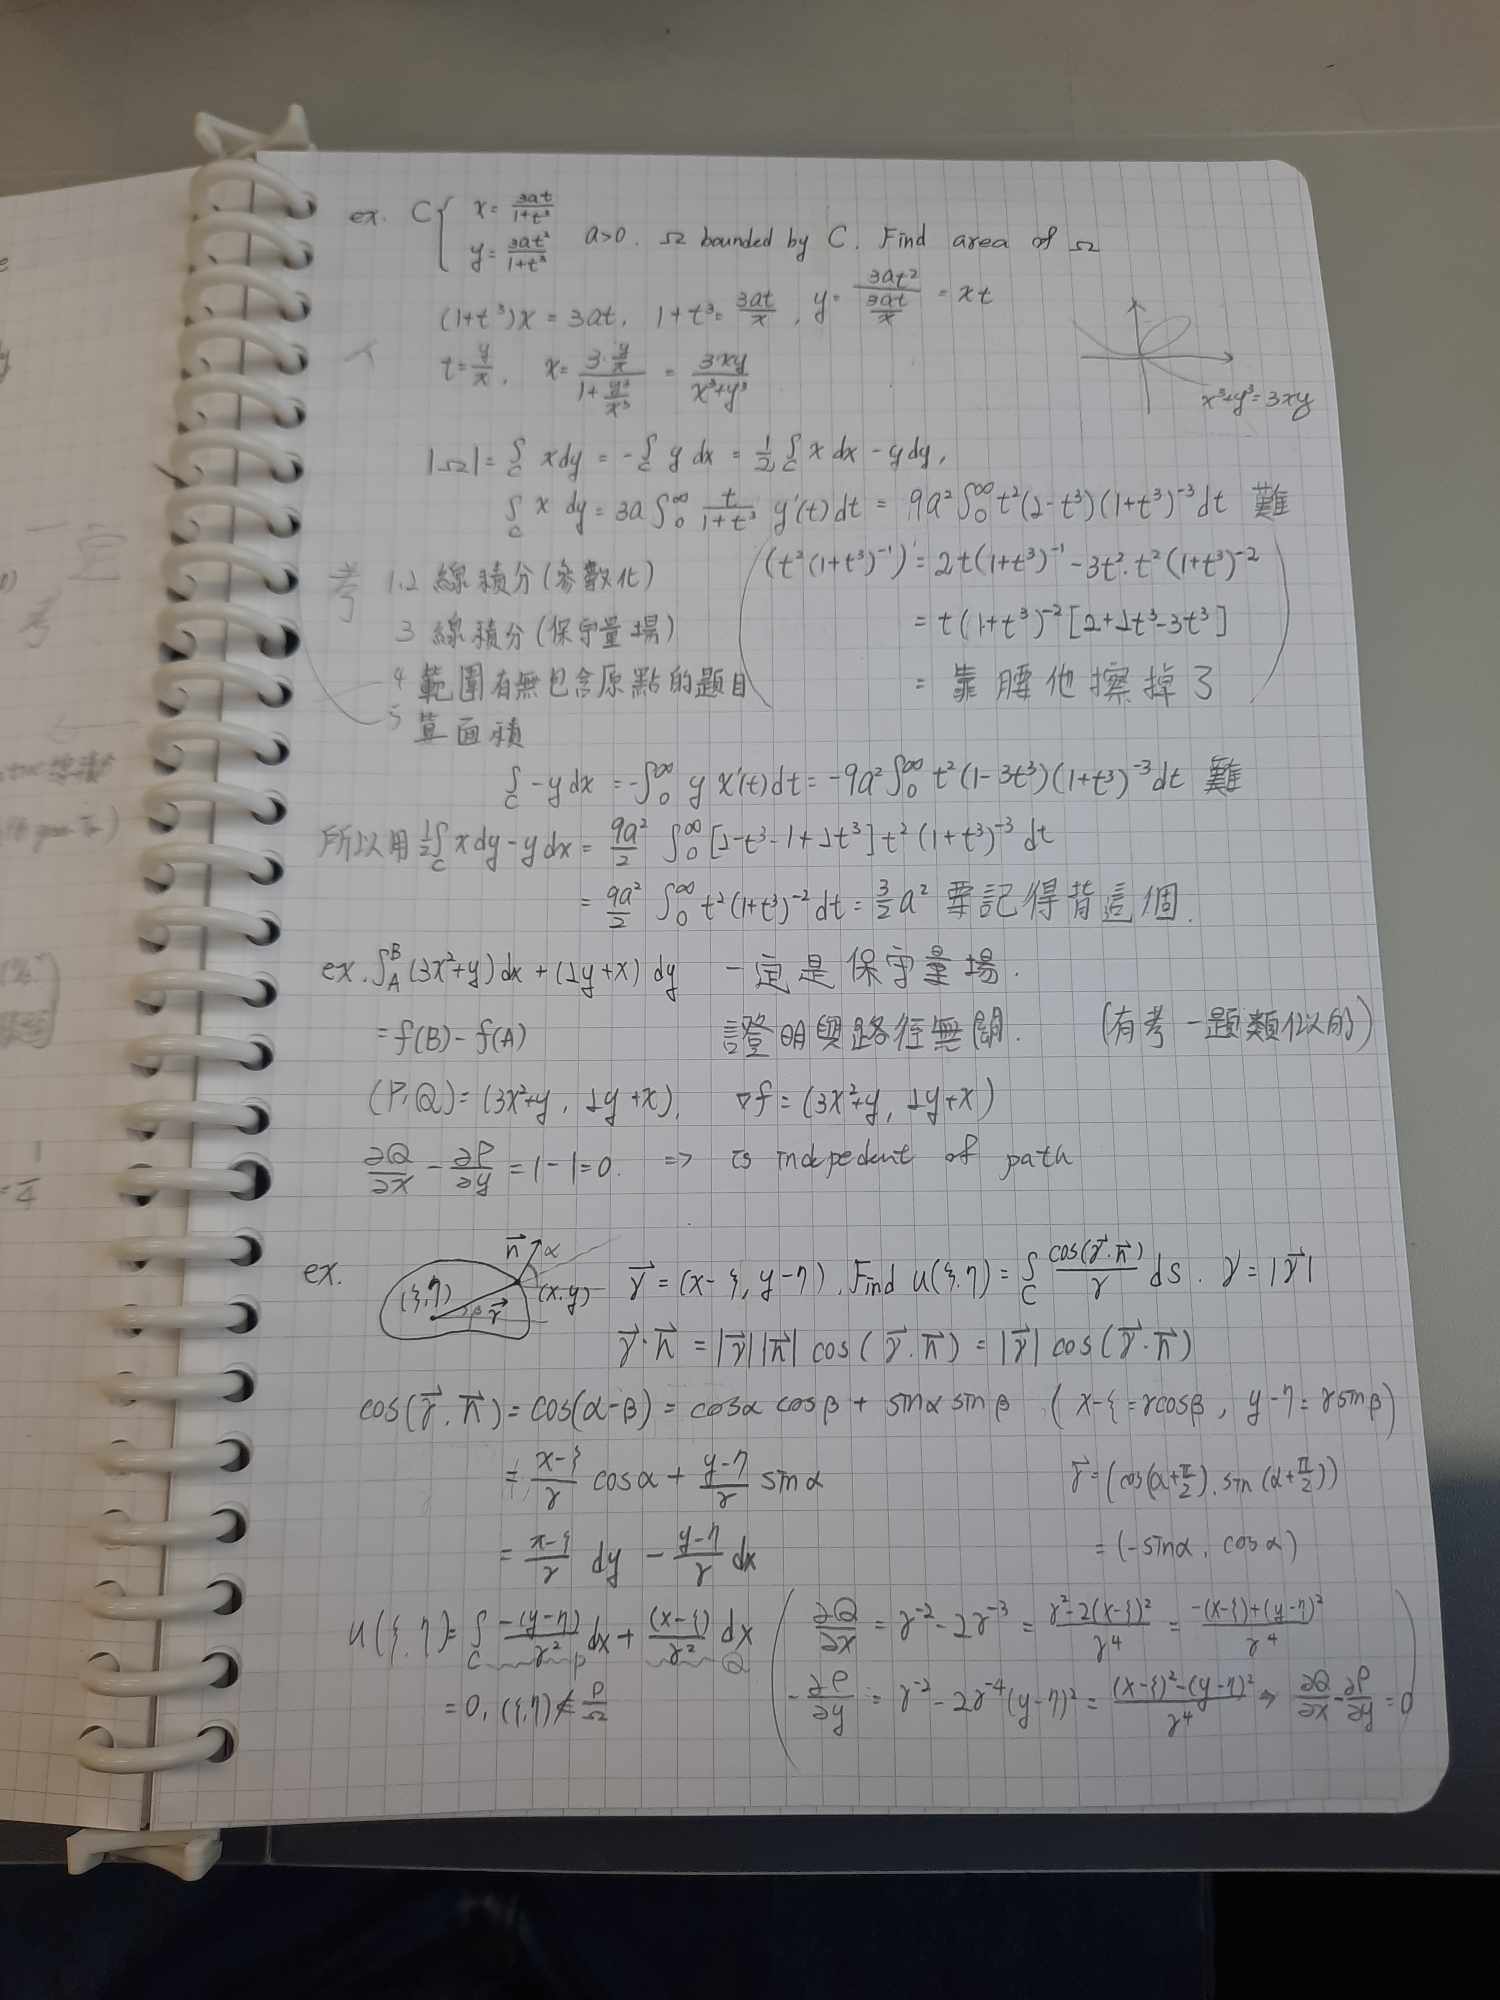 ex. C { x = 3at/(1+t³)
y = 3at²/(1+t³) a>0. Ω bounded by C. Find area of Ω
(1+t³)x = 3at, 1+t³ = 3at/x, y = 3at²/(3at/x) = xt
t = y/x, x = (3·y/x)/(1+y³/x³) = 3xy/(x³+y³)
x³+y³=3xy
|Ω| = ∫_C xdy = -∫_C y dx = 1/2 ∫_C x dx - y dy,
∫_C x dy = 3a ∫₀^∞ t/(1+t³) y'(t) dt = 9a² ∫₀^∞ t²(2-t³)(1+t³)⁻³ dt 難
(t²(1+t³)⁻¹)' = 2t(1+t³)⁻¹ - 3t²·t²(1+t³)⁻²
= t(1+t³)⁻²[2+2t³-3t³]
= 靠腰他擦掉了
考 1.2 線積分(參數化)
3 線積分(保守量場)
4 範圍有無包含原點的題目
5 算面積
∫_C -y dx = -∫₀^∞ y x'(t) dt = -9a² ∫₀^∞ t²(1-3t³)(1+t³)⁻³ dt 難
所以用 1/2 ∫_C x dy - y dx = 9a²/2 ∫₀^∞ [2-t³-1+2t³] t² (1+t³)⁻³ dt
= 9a²/2 ∫₀^∞ t²(1+t³)⁻² dt = 3/2 a² 要記得背這個.
ex. ∫_A^B (3x²+y) dx + (2y+x) dy 一定是保守量場.
= f(B) - f(A) 證明與路徑無關. (有考一題類似的)
(P,Q) = (3x²+y, 2y+x), ∇f = (3x²+y, 2y+x)
∂Q/∂x - ∂P/∂y = 1-1 = 0. => is indepedent of path
n⃗ α
(ξ,η) β r⃗ (x,y)
ex. r⃗ = (x-ξ, y-η), Find u(ξ,η) = ∫_C cos(r⃗·n⃗)/r ds. r = |r⃗|
r⃗·n⃗ = |r⃗||n⃗| cos(r⃗.n⃗) = |r⃗| cos(r⃗·n⃗)
cos(r⃗.n⃗) = cos(α-β) = cosα cosβ + sinα sinβ (x-ξ = rcosβ, y-η = rsinβ)
= (x-ξ)/r cosα + (y-η)/r sinα r⃗ = (cos(α+π/2), sin(α+π/2))
= (x-ξ)/r dy - (y-η)/r dx = (-sinα, cosα)
u(ξ,η) = ∫_C -(y-η)/r² dx + (x-ξ)/r² dx
P Q
= 0, (ξ,η) ∉ Ω
(∂Q/∂x = r⁻² - 2r⁻³ = (r²-2(x-ξ)²)/r⁴ = (-(x-ξ)+(y-η)²)/r⁴
-∂P/∂y = r⁻² - 2r⁻⁴(y-η)² = ((x-ξ)²-(y-η)²)/r⁴ => ∂Q/∂x - ∂P/∂y = 0)